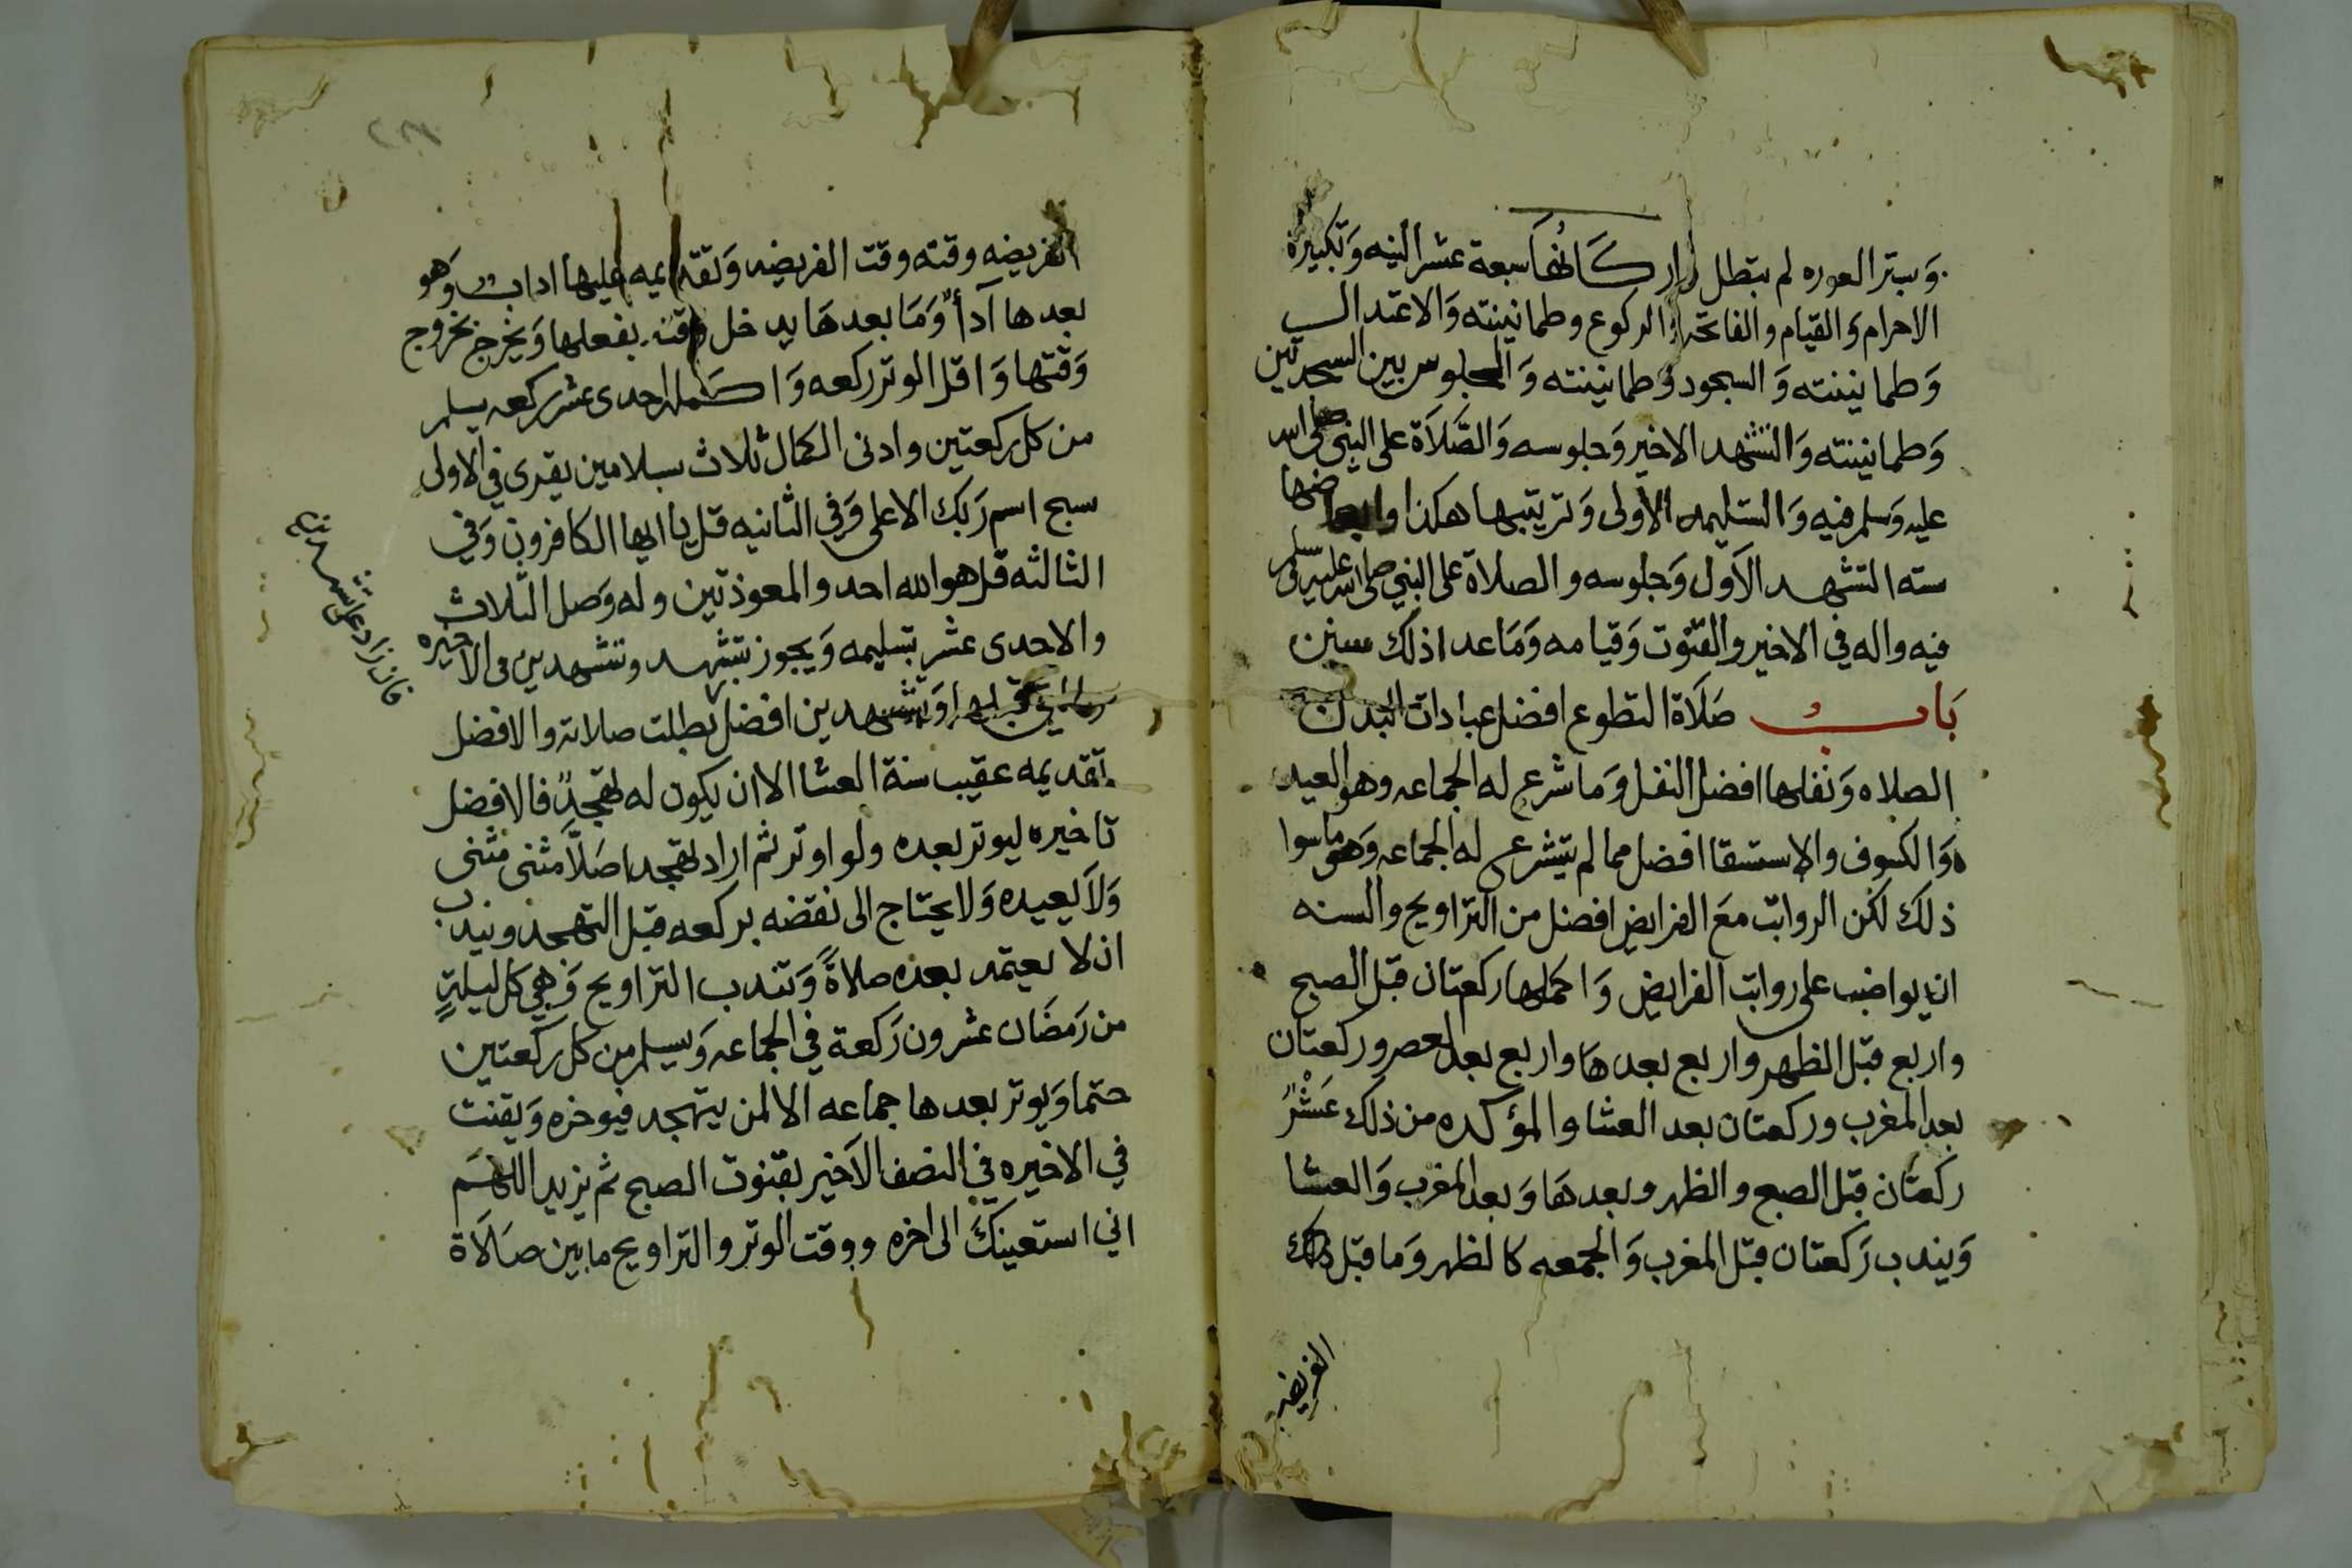 وستر العوره لم تبطل اركانها سبعة عشر النيه وتكبيرة
الاحرام والقيام والفاتحه والركوع وطمانينته والاعتدال
وطمانينته والسجود وطمانينته والجلوس بين السجدتين
وطمانينته والتشهد الاخير وجلوسه والصلاة على النبي صلى الله
عليه وسلم فيه والتسليمه الأولى وترتيبها هكذا وابعاضها
سته التشهد الأول وجلوسه والصلاة على النبي صلى الله عليه وسلم
فيه واله في الاخير والقنوت وقيامه وما عدا ذلك سنن
باب صلاة التطوع افضل عبادات البدن
الصلاه ونفلها افضل النفل وما شرع له الجماعه وهو العيد
والكسوف والاستسقا افضل مما لم يشرع له الجماعه وهو ما سوا
ذلك لكن الرواتب مع الفرايض افضل من التراويح والسنه
ان يواضب على رواتب الفرايض واكملها ركعتان قبل الصبح
واربع قبل الظهر واربع بعدها واربع بعد العصر وركعتان
بعد المغرب وركعتان بعد العشا والمؤكده من ذلك عَشْرٌ
ركعتان قبل الصبح والظهر وبعدها وبعد المغرب والعشا
ويندب ركعتان قبل المغرب والجمعه كالظهر وما قبل ذلك
الفريضه
الفريضه وقته وقت الفريضه وتقديمه عليها اداب وهو
بعدها آداً وما بعدها يدخل وقته بفعلها ويخرج بخروج
وقتها واقل الوتر ركعه واكمله احدى عشر ركعه يسلم
من كل ركعتين وادنى الكمال ثلاث بسلامين يقرى في الاولى
سبح اسم ربك الاعلى وفي الثانيه قل يا ايها الكافرون وفي
الثالثه قل هو الله احد والمعوذتين وله وصل الثلاث
والاحدى عشر بتسليمه ويجوز بتشهد وتشهدين في الاخيره
وتشهدين افضل بطلت صلاته والافضل
فان زاد على تشهدين
تقديمه عقيب سنة العشا الا ان يكون له تهجدٌ فالافضل
تاخيره ليوتر بعده ولو اوتر ثم اراد تهجدا صلا مثنى مثنى
ولا يعيده ولا يحتاج الى نقضه بركعه قبل التهجد ويندب
ان لا يعتمد بعده صلاةً وتندب التراويح وهي كل ليلةٍ
من رمضان عشرون ركعة في الجماعه ويسلم من كل ركعتين
حتما ويوتر بعدها جماعه الا لمن يتهجد فيوخره ويقنت
في الاخيره في النصف الأخير بقنوت الصبح ثم يزيد اللهم
اني استعينك الى اخره ووقت الوتر والتراويح ما بين صلاة